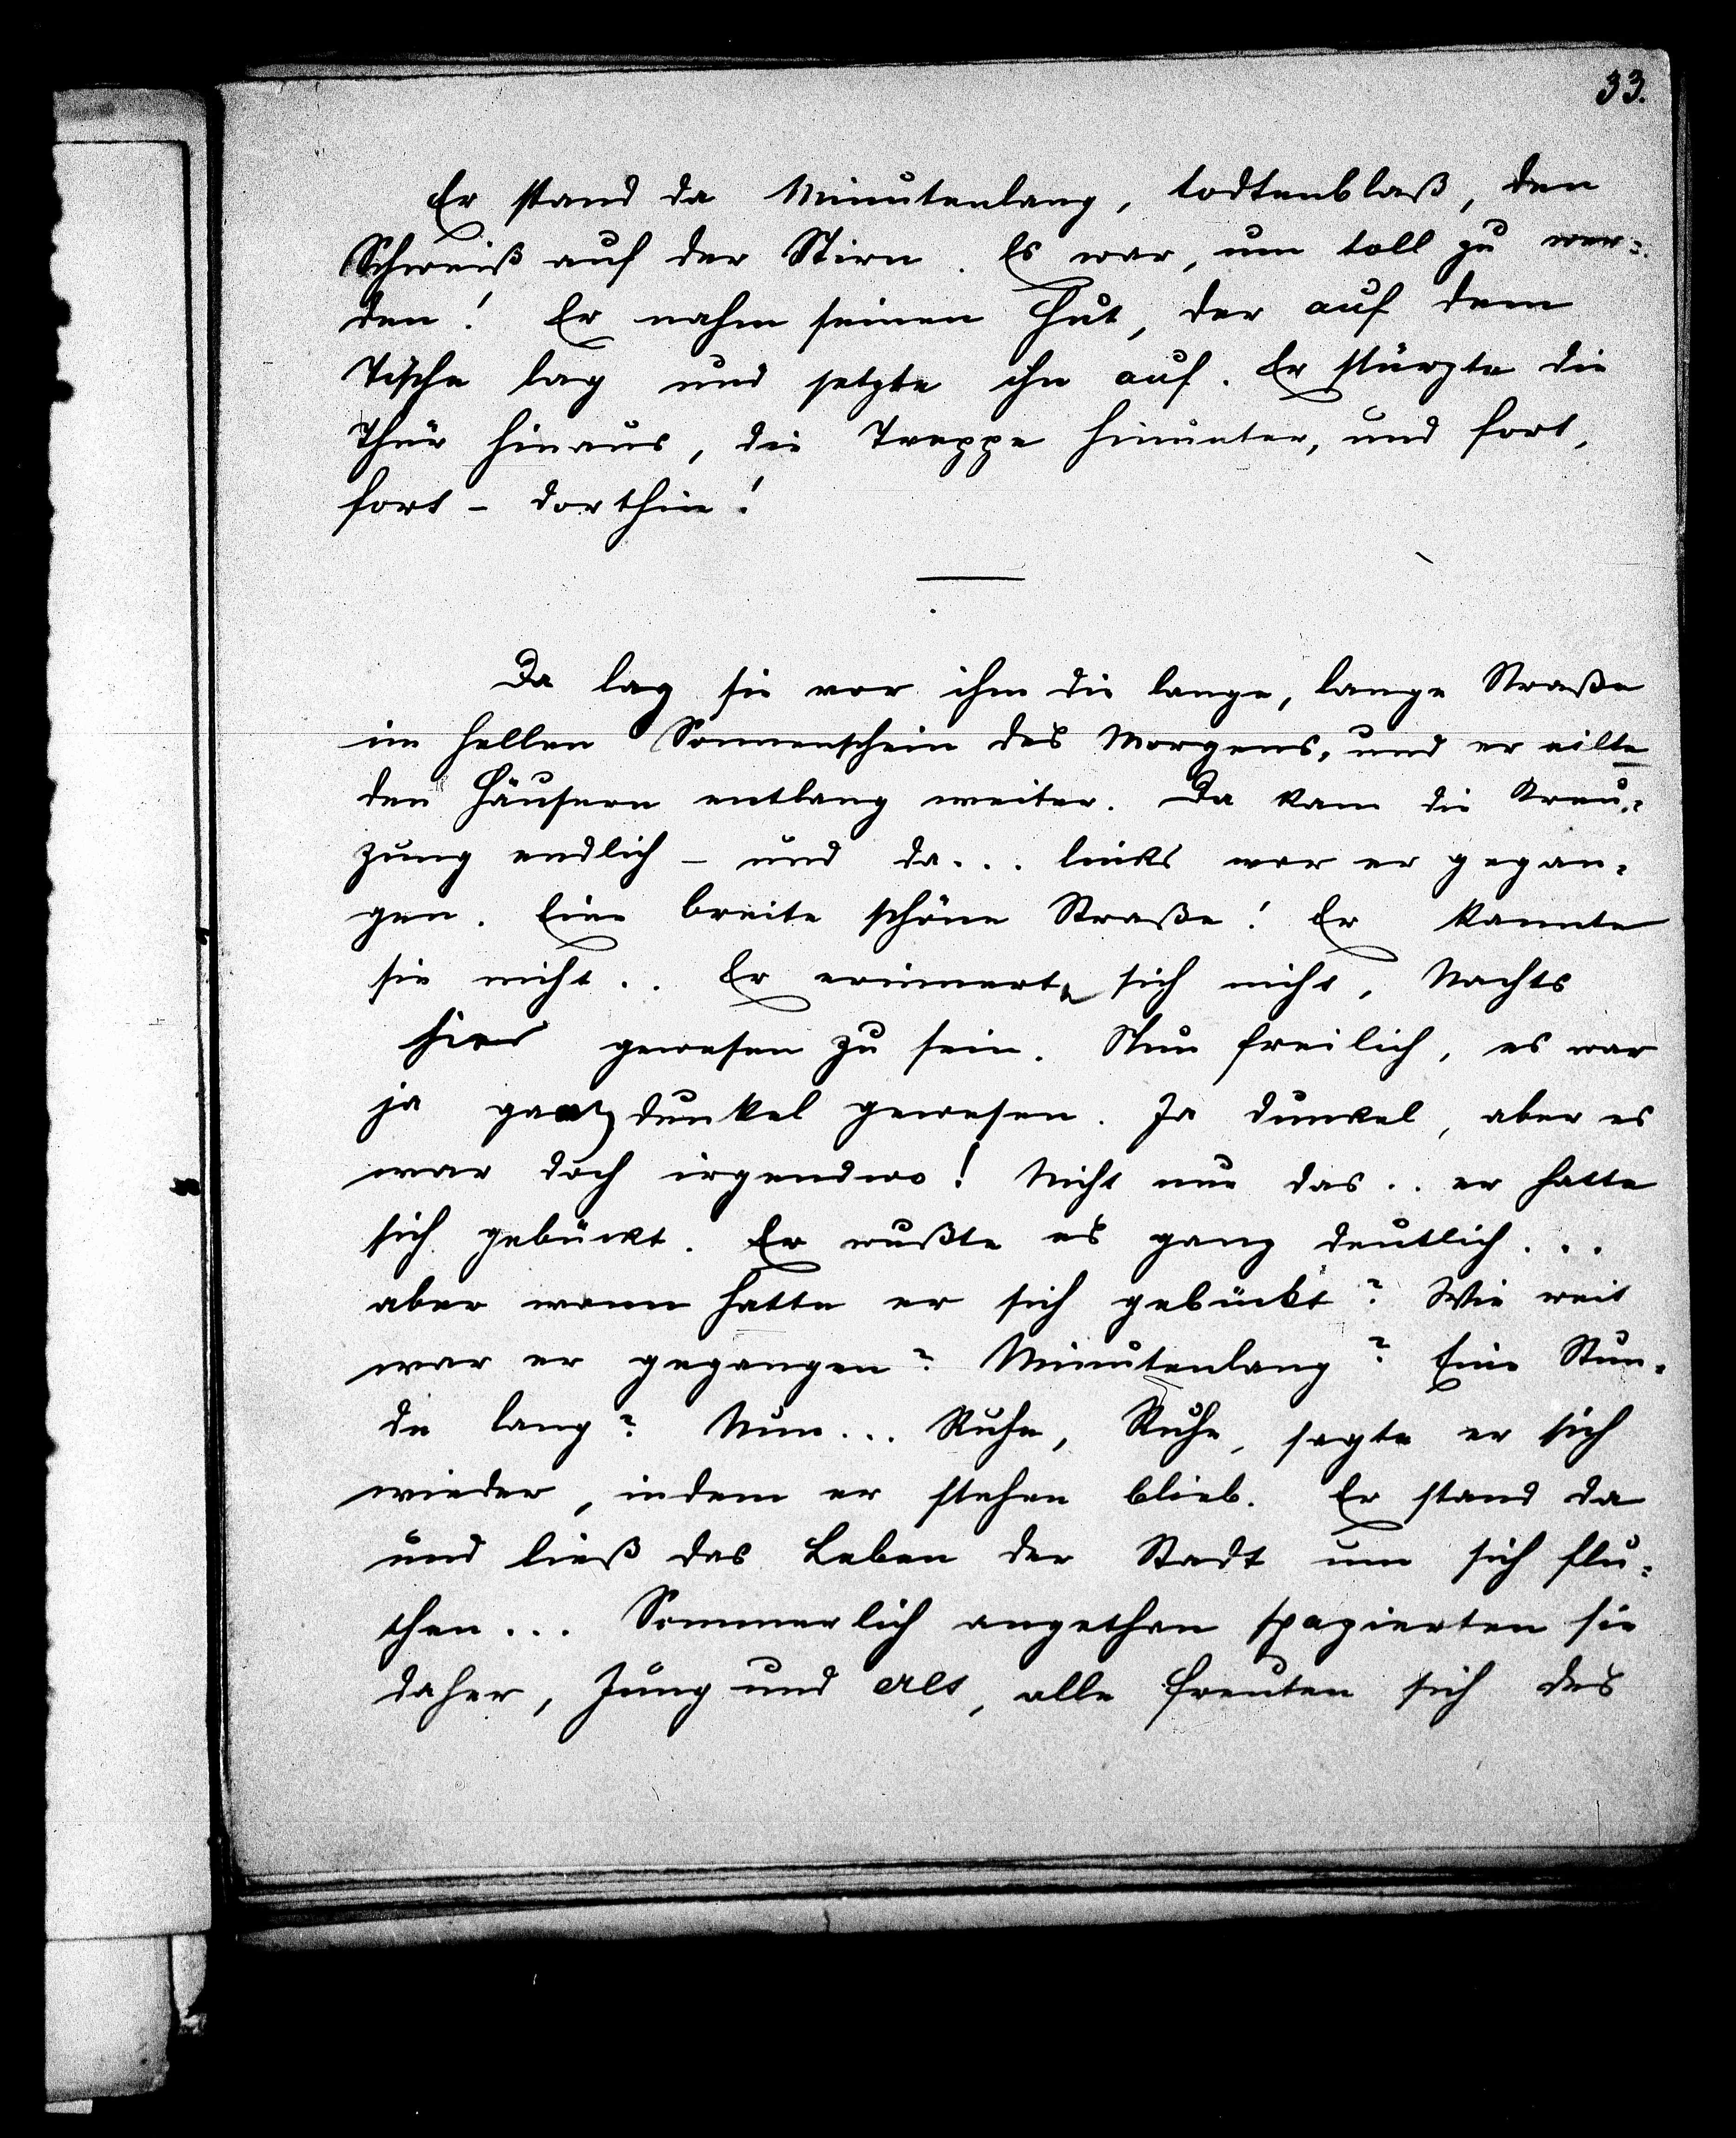 33.
Er stand da Minutenlang, todtenblaß, den
Schweiß auf der Stirn. Es war, um toll zu wer=
den! Er nahm seinen Hut, der auf dem
Tische lag und setzte ihn auf. Er stürzte die
Thür hinaus, die Treppe hinunter, und fort,
fort – dorthin!
Da lag sie vor ihm die lange, lange Straße
im hellen Sonnenschein des Morgens, und er eilte
den Häusern entlang weiter. Da kam die Kreu=
zung endlich – und da... links war er gegan=
gen. Eine breite schöne Straße! Er kannte
sie nicht.. Er erinnerte sich nicht, Nachts
hier gewesen zu sein. Nun freilich, es war
ja ganz dunkel gewesen. Ja dunkel, aber es
war doch irgendwo! Nicht nur das.. er hatte
sich gebückt. Er wußte es ganz deutlich...
aber wann hatte er sich gebückt? Wie weit
war er gegangen? Minutenlang? Eine Stun=
de lang? Nun... Ruhe, Ruhe, sagte er sich
wieder, indem er stehen blieb. Er stand da
und ließ das Leben der Stadt um sich flu=
then... Sommerlich angethan spazierten sie
daher, Jung und Alt, alle freuten sich des